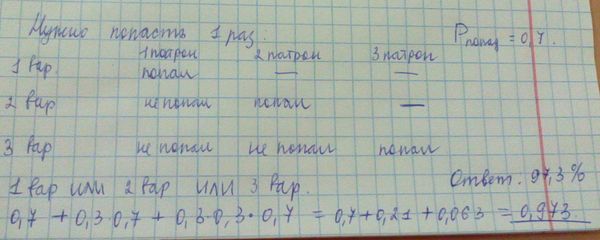 Нужно попасть 1 раз: Pпопад = 0,7.
1 патрон 2 патрон 3 патрон
1 вар. попал — —
2 вар не попал попал —
3 вар не попал не попал попал
1 вар ИЛИ 2 вар ИЛИ 3 вар. Ответ. 97,3 %
0,7 + 0,3·0,7 + 0,3·0,3·0,7 = 0,7+0,21+0,063 = 0,973